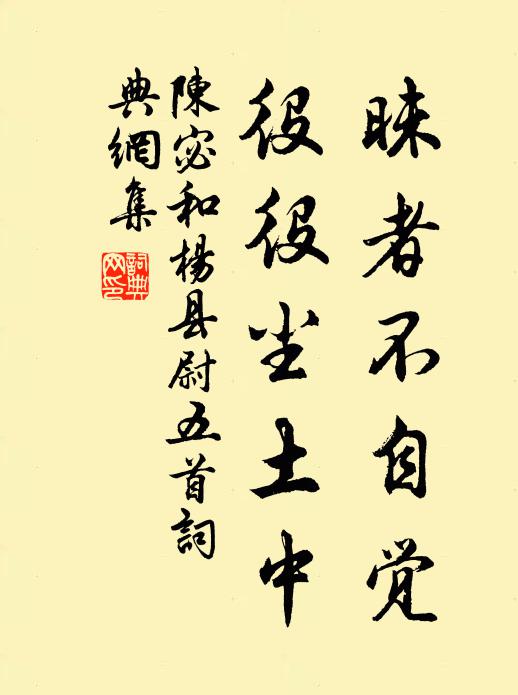 昧者不自觉
役役尘土中
陳宓和楊县尉五首詞
典網集
詞典网印